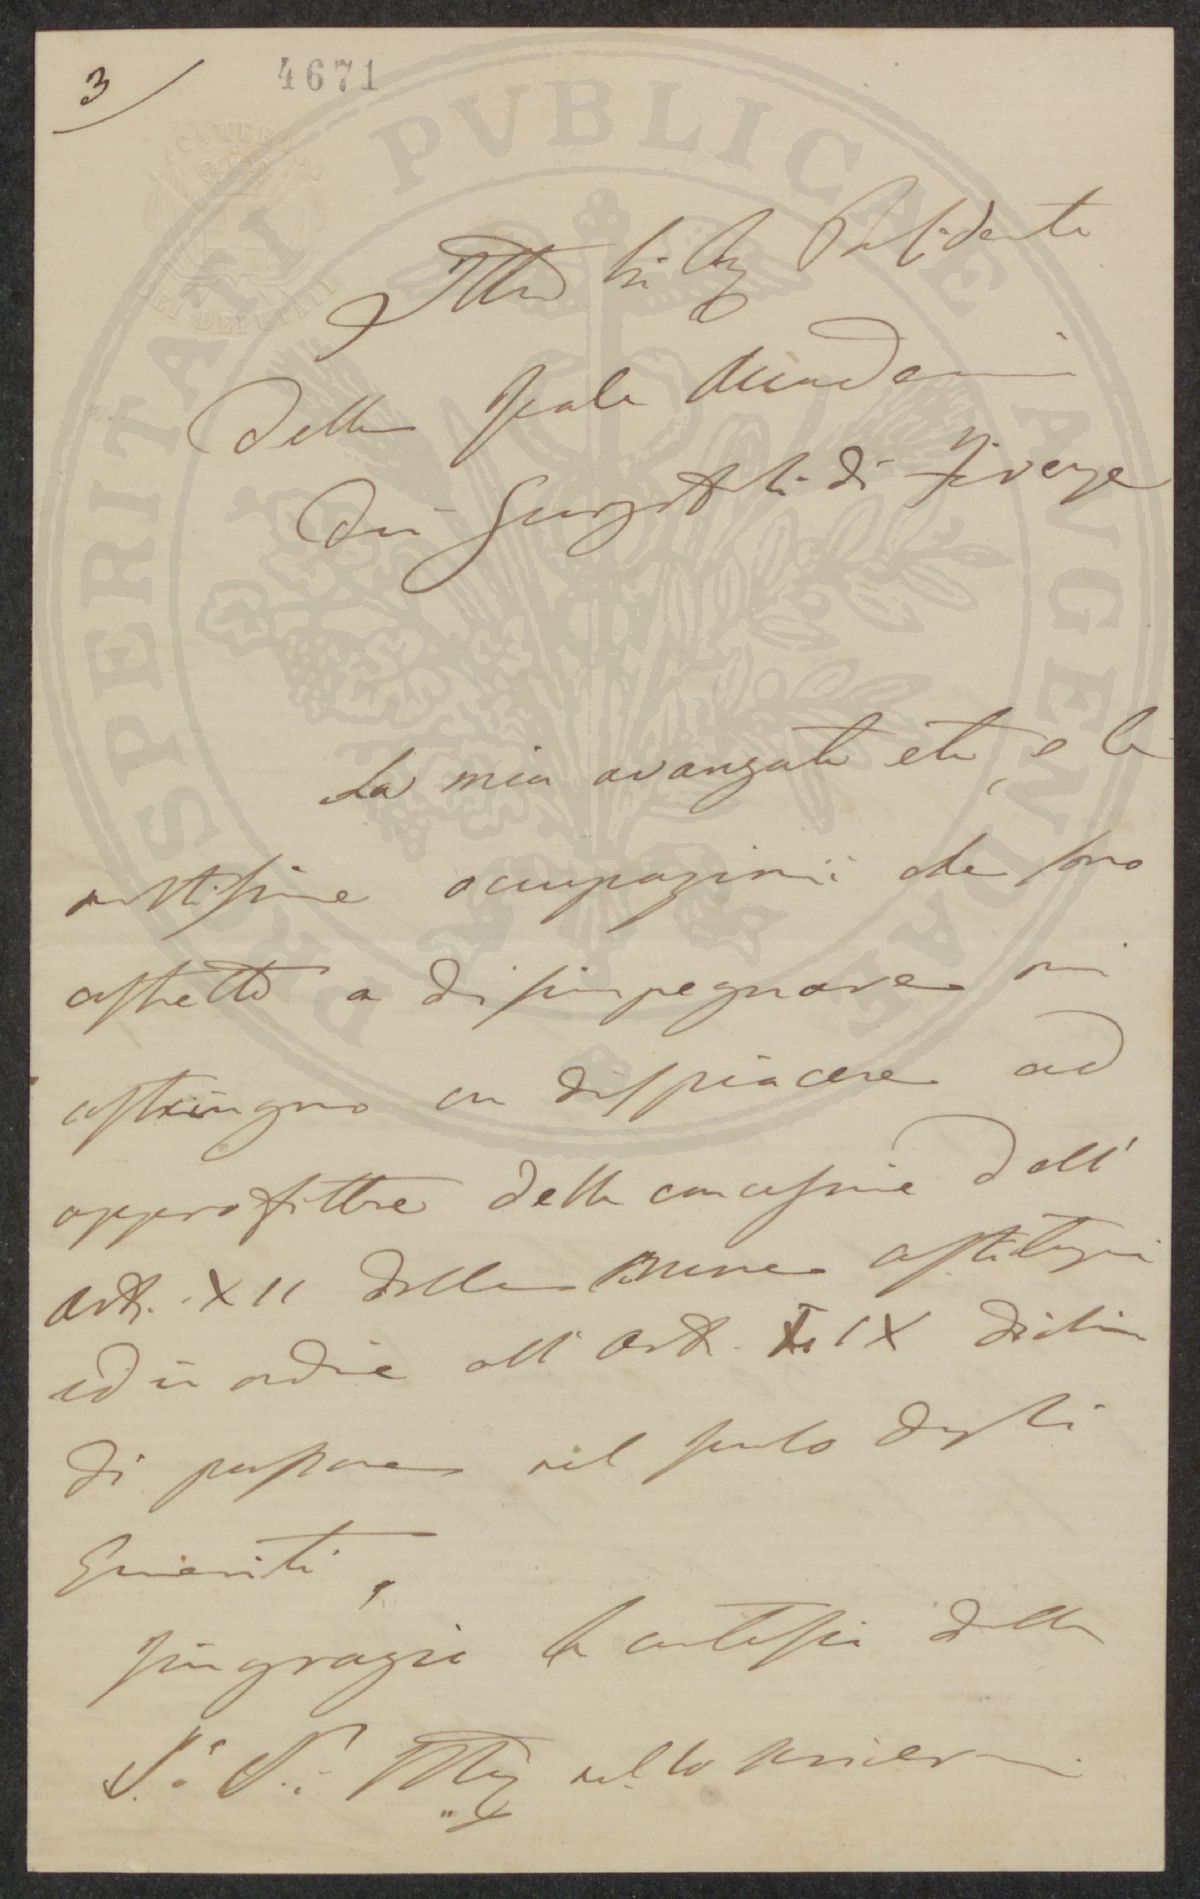 3
4671
CAMERA
DEI DEPUTATI
PROSPERITATI PVBLICAE AVGENDAE
Illmo Sig Presidente
della Reale Accademia
dei Georgofili di Firenze
La mia avanzata età, e le
moltissime occupazioni che sono
astretto a disimpegnare mi
astringono con dispiacere ad
approfittare della concessione dell'
Art. XII delle nuove costituzioni
ed in ordine all' Art. IX
di passare nel ruolo degli
Emeriti.
Ringrazio la cortesia della
S. V. Illma